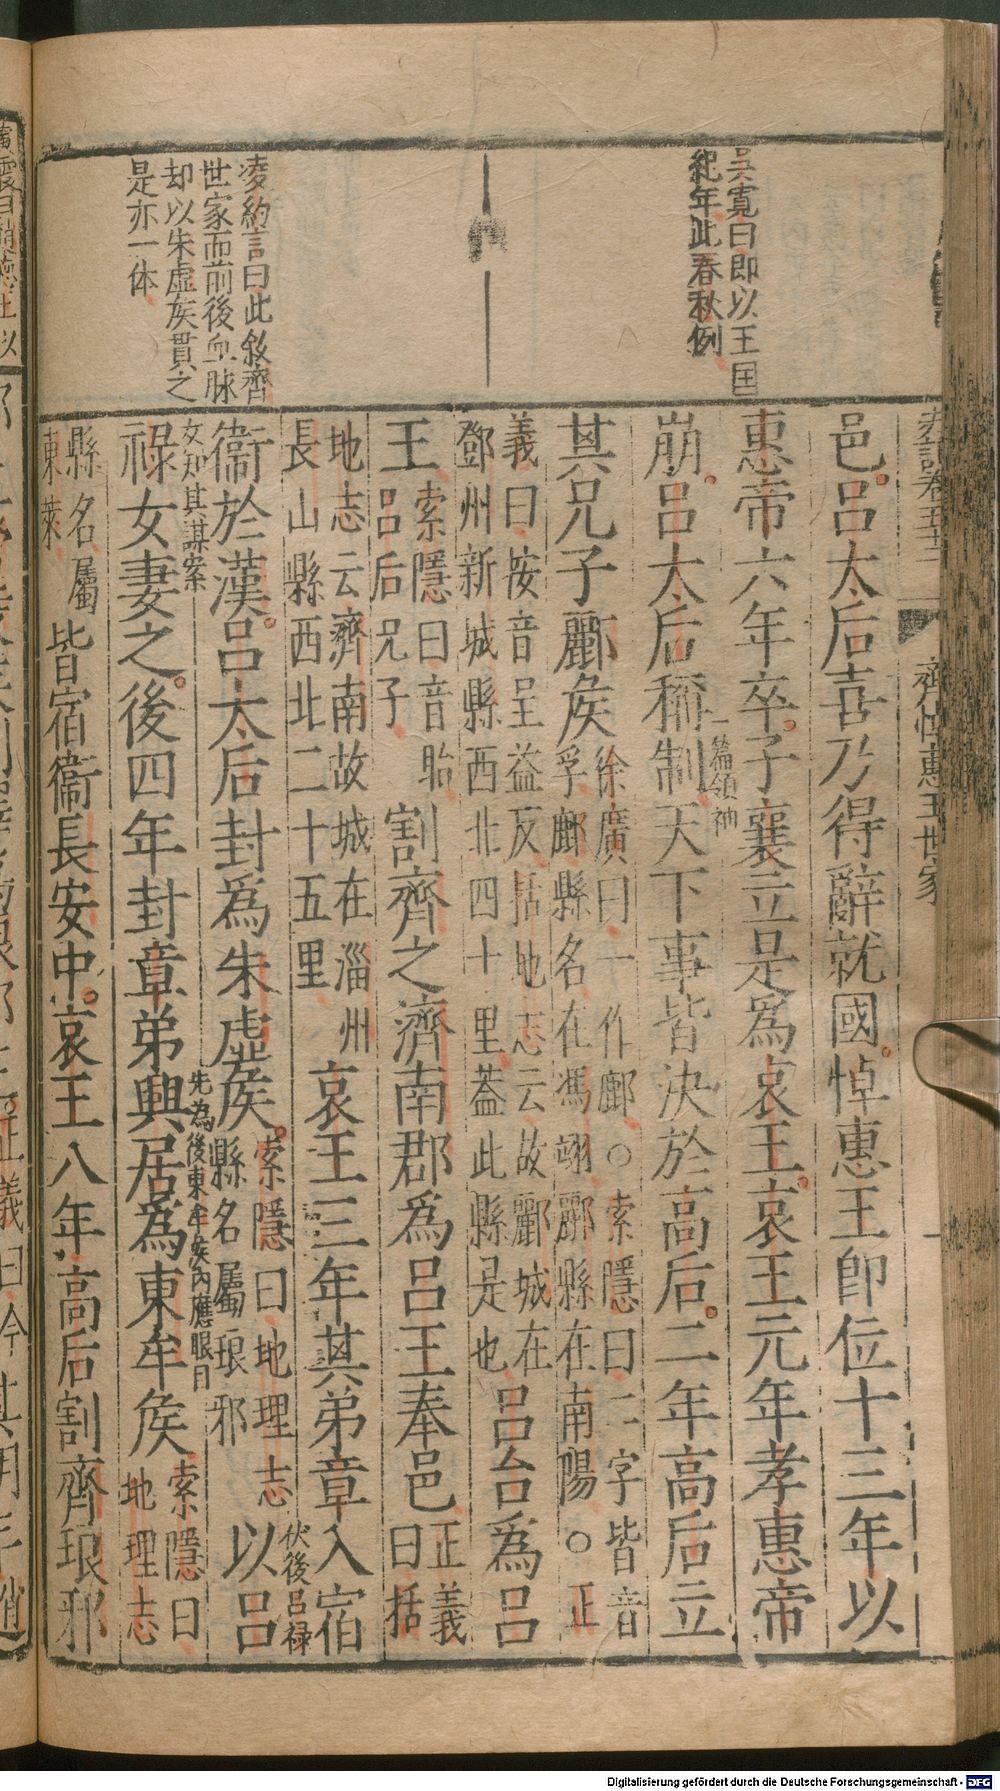 吳寬曰即以王国
紀年此春秋例
凌約言曰此敘齊
世家而前後血脉
却以朱虛矦貫之
是亦一体
史記卷五十二
齊悼惠王世家
邑。呂太后喜乃得辭就國。悼惠王卽位十三年以
惠帝六年卒。子襄立是爲哀王。哀王元年孝惠帝
一篇領袖
崩。呂太后稱制天下事皆決於高后。二年高后立
其兄子酈矦
徐廣曰一作鄜○索隱曰二字皆音
孚鄜縣名在馮翊酈縣在南陽○正
義曰按音呈益反括地志云故酈城在
鄧州新城縣西北四十里葢此縣是也
呂台爲呂
王
索隱曰音胎
呂后兄子
割齊之濟南郡爲呂王奉邑
正義
曰括
地志云齊南故城在淄州
長山縣西北二十五里
哀王三年其弟章入宿
伏後呂祿
女知其謀案
衞於漢。呂太后封爲朱虛矦。
索隱曰地理志
縣名屬琅邪
以呂
祿女妻之。後四年封章弟興居爲東牟矦
先為後東牟矦內應眼目
索隱曰
地理志
縣名屬
東萊
皆宿衞長安中。哀王八年高后割齊琅邪
Digitalisierung gefördert durch die Deutsche Forschungsgemeinschaft - DFG